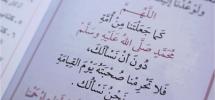 اللَّهُمَّ
كَمَا جَعَلْتَنَا مِنْ أُمَّةِ
مُحَمَّدٍ صَلَّى اللَّهُ عَلَيْهِ وَسَلَّمَ
دُونَ أَنْ نَسْأَلَكَ،
فَلَا تَحْرِمْنَا صُحْبَتَهُ يَوْمَ الْقِيَامَةِ
نَحْنُ نَسْأَلُكَ